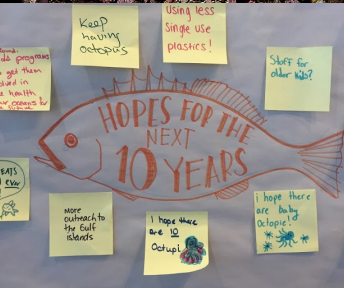 Keep
having
octopus
Using less
single use
plastics!
Stuff for
older kids?
programs
get them
in
health
oceans
HOPES FOR THE
NEXT
10 YEARS
more
outreach to
the Gulf
islands
I hope there
are 10
Octupi
i hope there
are baby
Octopie!